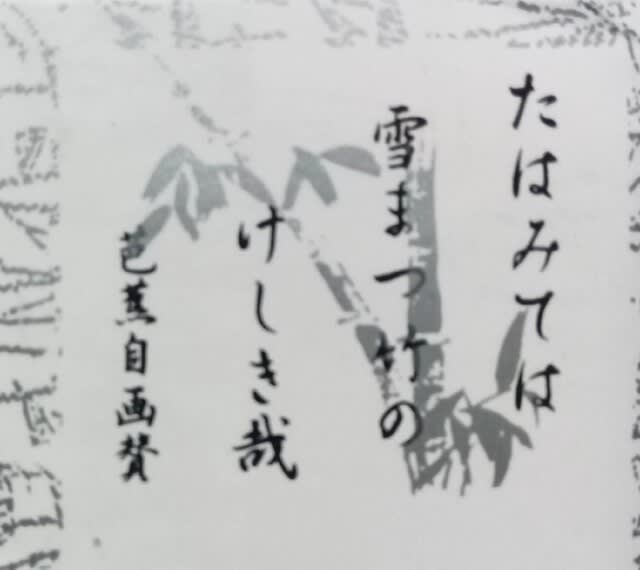 たはみては
雪まつ竹の
けしき哉
芭蕉自画賛